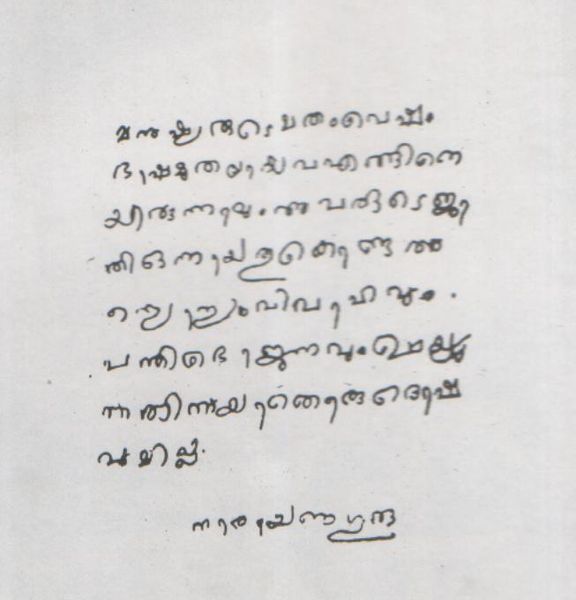 മനുഷ്യരുടെ മതം വെഷം
ഭാഷ മുതലായവ എങ്ങിനെ
യിരുന്നാലും അവരുടെ ജാ
തി ഒന്നായതുകൊണ്ട അ
ന്യൊന്യം വിവാഹവും.
പന്തിഭൊജനവും ചെയ്യു
ന്നതിന്ന യാതൊരു ദൊഷ
വുമില്ല.
നാരായണഗുരു